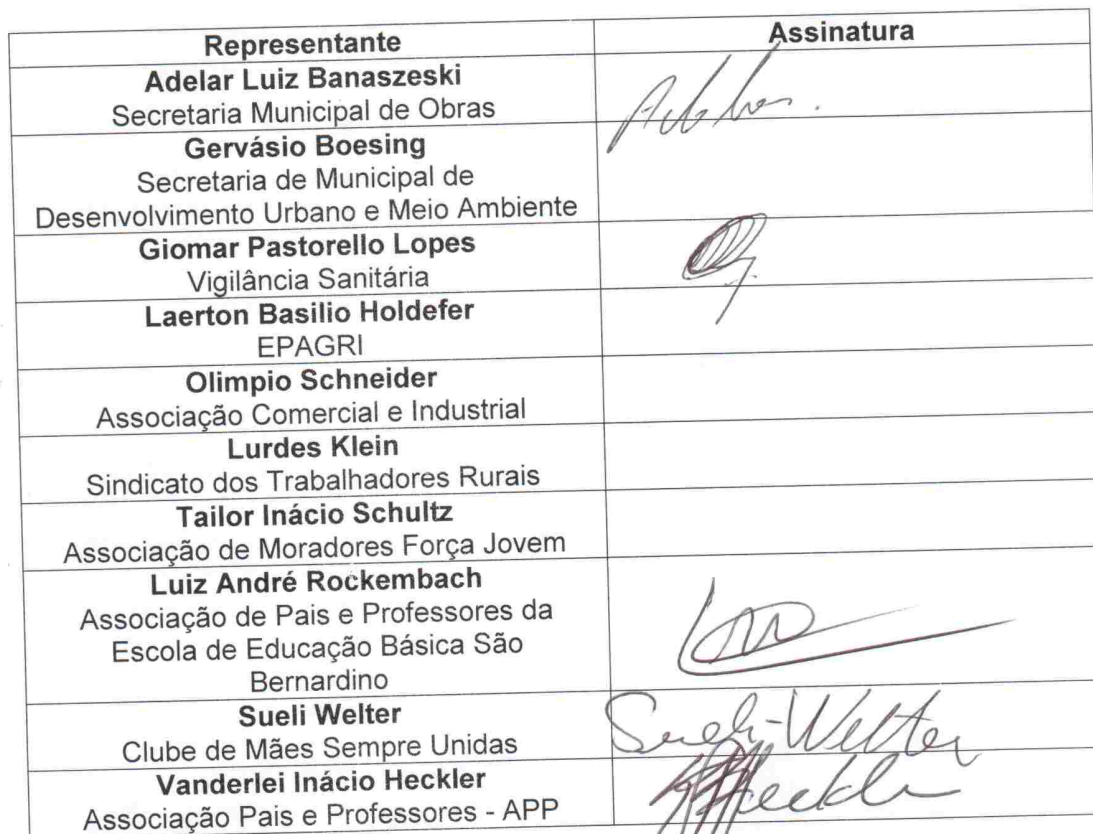 Representante Assinatura
Adelar Luiz Banaszeski
Secretaria Municipal de Obras
Gervásio Boesing
Secretaria de Municipal de
Desenvolvimento Urbano e Meio Ambiente
Giomar Pastorello Lopes
Vigilância Sanitária
Laerton Basilio Holdefer
EPAGRI
Olimpio Schneider
Associação Comercial e Industrial
Lurdes Klein
Sindicato dos Trabalhadores Rurais
Tailor Inácio Schultz
Associação de Moradores Força Jovem
Luiz André Rockembach
Associação de Pais e Professores da
Escola de Educação Básica São
Bernardino
Sueli Welter
Clube de Mães Sempre Unidas
Sueli Welter
Vanderlei Inácio Heckler
Associação Pais e Professores - APP
Heckler